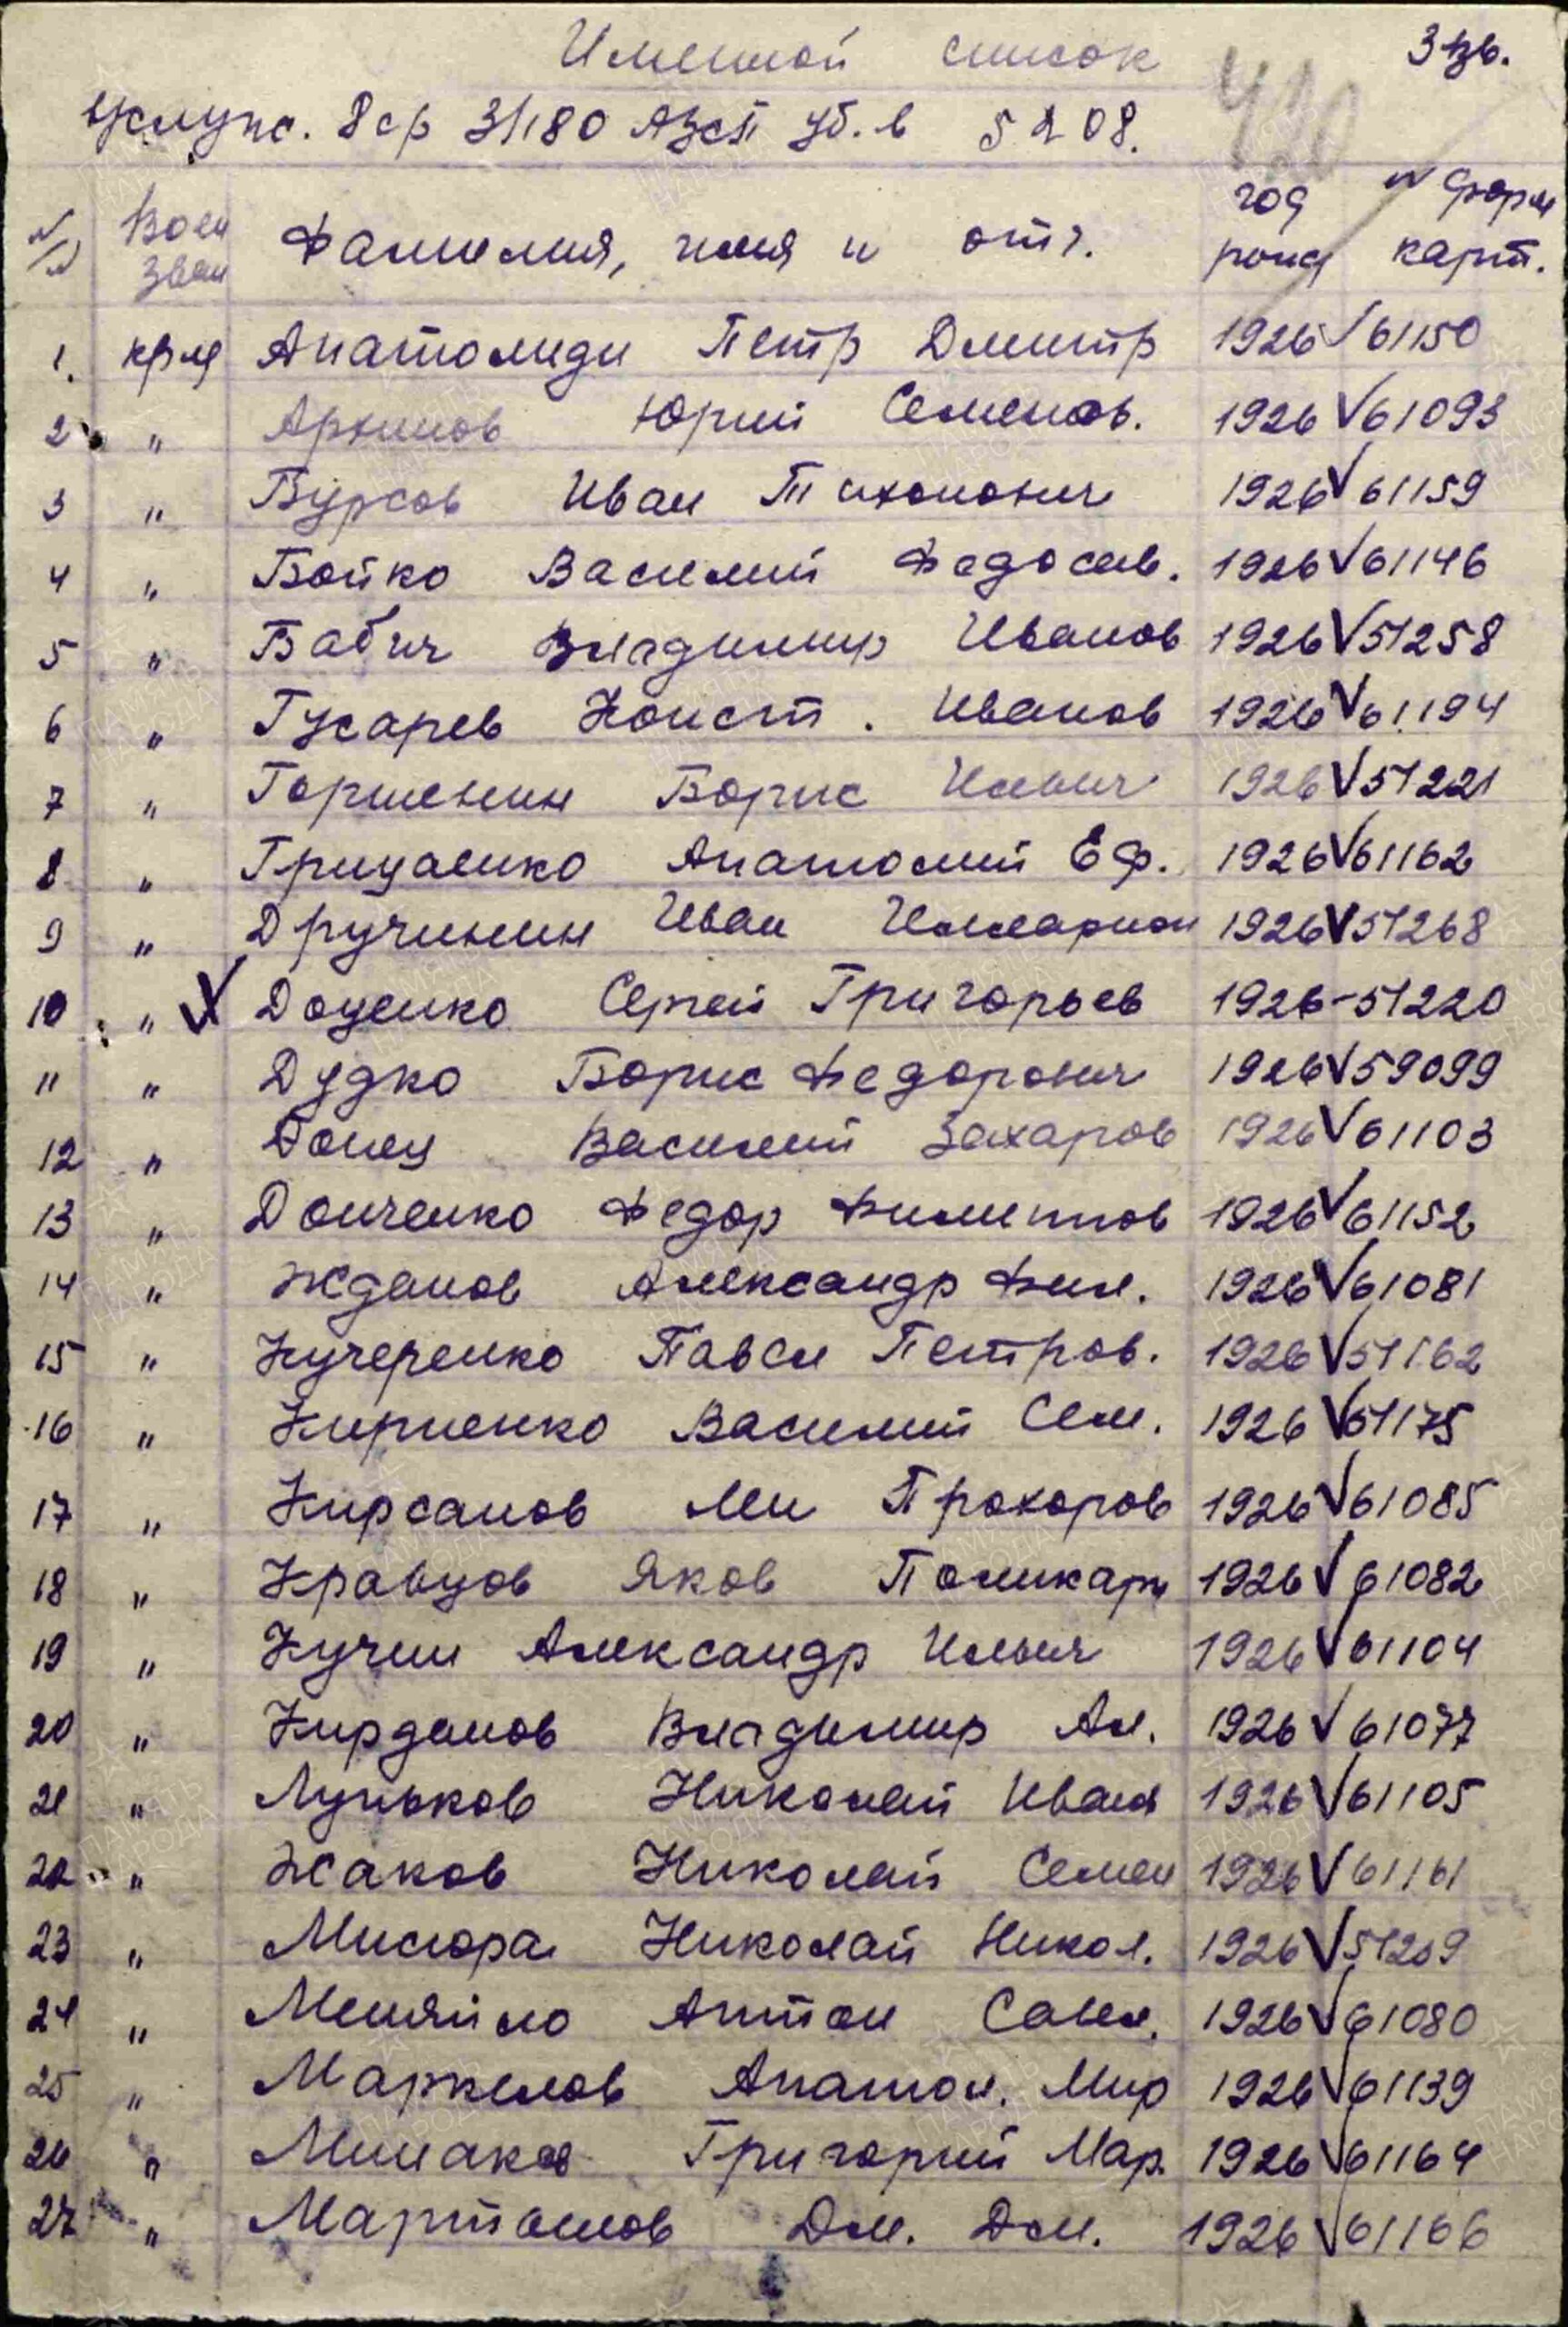 Именной список 3 взв.
8 ср 3/180 АЗСП уб. в 5208.
№ Воен зван Фамилия, имя и отч. год рожд № форм карт.
1. кр-ц Анатолиди Петр Дмитр 1926 61150
2 " Архипов Юрий Семенов. 1926 61093
3 " Бурсов Иван Тихонович 1926 61159
4 " Бойко Василий Федосеев. 1926 61146
5 " Бабич Владимир Иванов 1926 51258
6 " Гусарев Конст. Иванов 1926 61194
7 " Горшенин Борис Ильич 1926 51221
8 " Грицаенко Анатолий Еф. 1926 61162
9 " Дручинин Иван Илларион 1926 51268
10 " Доценко Сергей Григорьев 1926 - 51220
11 " Дудко Борис Федорович 1926 59099
12 " Донец Василий Захаров 1926 61103
13 " Донченко Федор Филиппов 1926 61152
14 " Жданов Александр Фил. 1926 61081
15 " Кучеренко Павел Петров. 1926 51162
16 " Кириенко Василий Сем. 1926 51175
17 " Кирсанов Ми Прохоров 1926 61085
18 " Кравцов Яков Поликарп 1926 61082
19 " Кучин Александр Ильич 1926 61104
20 " Кирданов Владимир Ал. 1926 61077
21 " Луньков Николай Иван 1926 61105
22 " Жаков Николай Семен 1926 61161
23 " Мисюра Николай Никол. 1926 51209
24 " Меняйло Антон Савел. 1926 61080
25 " Маркелов Анатол. Мир 1926 61139
26 " Минаков Григорий Мар. 1926 61164
27 " Мартынов Дм. Дм. 1926 61166